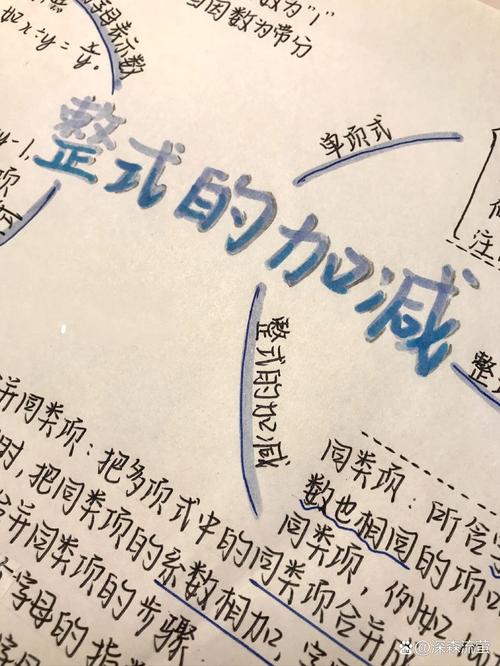 数为"1"
因数为带分
母表示数
如x÷y=x/y.
整式的加减
单项式
y-1,
项
注
整式的加减
整
并同类项:把多项式中的同类项合并
时,把同类项的系数相加,字
合并同类项的步骤
字母的指
同类项:所含
数也相同的项
同类项,例如
深森流萤